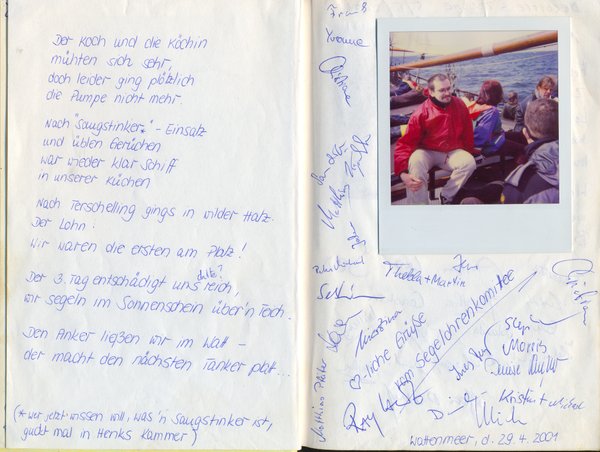 Der Koch und die Köchin
mühten sich sehr,
doch leider ging plötzlich
die Pumpe nicht mehr.
Nach "Saugstinker*" - Einsatz
und üblen Gerüchen
war wieder klar Schiff
in unserer Küchen
Nach Terschelling gings in wilder Hatz.
Der Lohn:
Wir waren die ersten am Platz!
Der 3. Tag entschädigt uns reich,
wir segeln im Sonnenschein über'n Teich.
Den Anker ließen wir im Watt -
der macht den nächsten Tanker platt...
(* wer jetzt wissen will, was 'n Saugstinker ist,
guckt mal in Henks Kammer)
Yvonne
Christiane
Thekla + Martin
Martina
♡-liche Grüße
vom Segelohrenkomitee
Christiane
Morris
Kristin + Michael
Wattenmeer, d. 29.4.2001